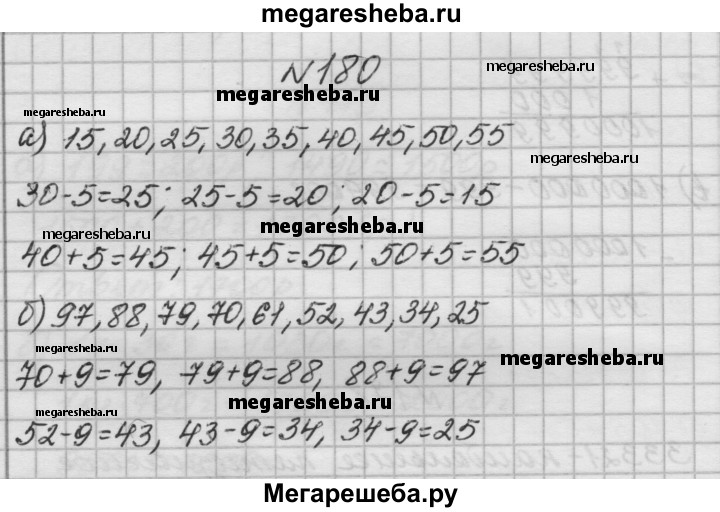 megaresheba.ru
№180
megaresheba.ru
megaresheba.ru
megaresheba.ru
а) 15, 20, 25, 30, 35, 40, 45, 50, 55
megaresheba.ru
30-5=25; 25-5=20; 20-5=15
megaresheba.ru
megaresheba.ru
40+5=45; 45+5=50; 50+5=55
б) 97, 88, 79, 70, 61, 52, 43, 34, 25
megaresheba.ru
megaresheba.ru
70+9=79, 79+9=88, 88+9=97
megaresheba.ru
megaresheba.ru
52-9=43, 43-9=34, 34-9=25
Мегарешеба.ру